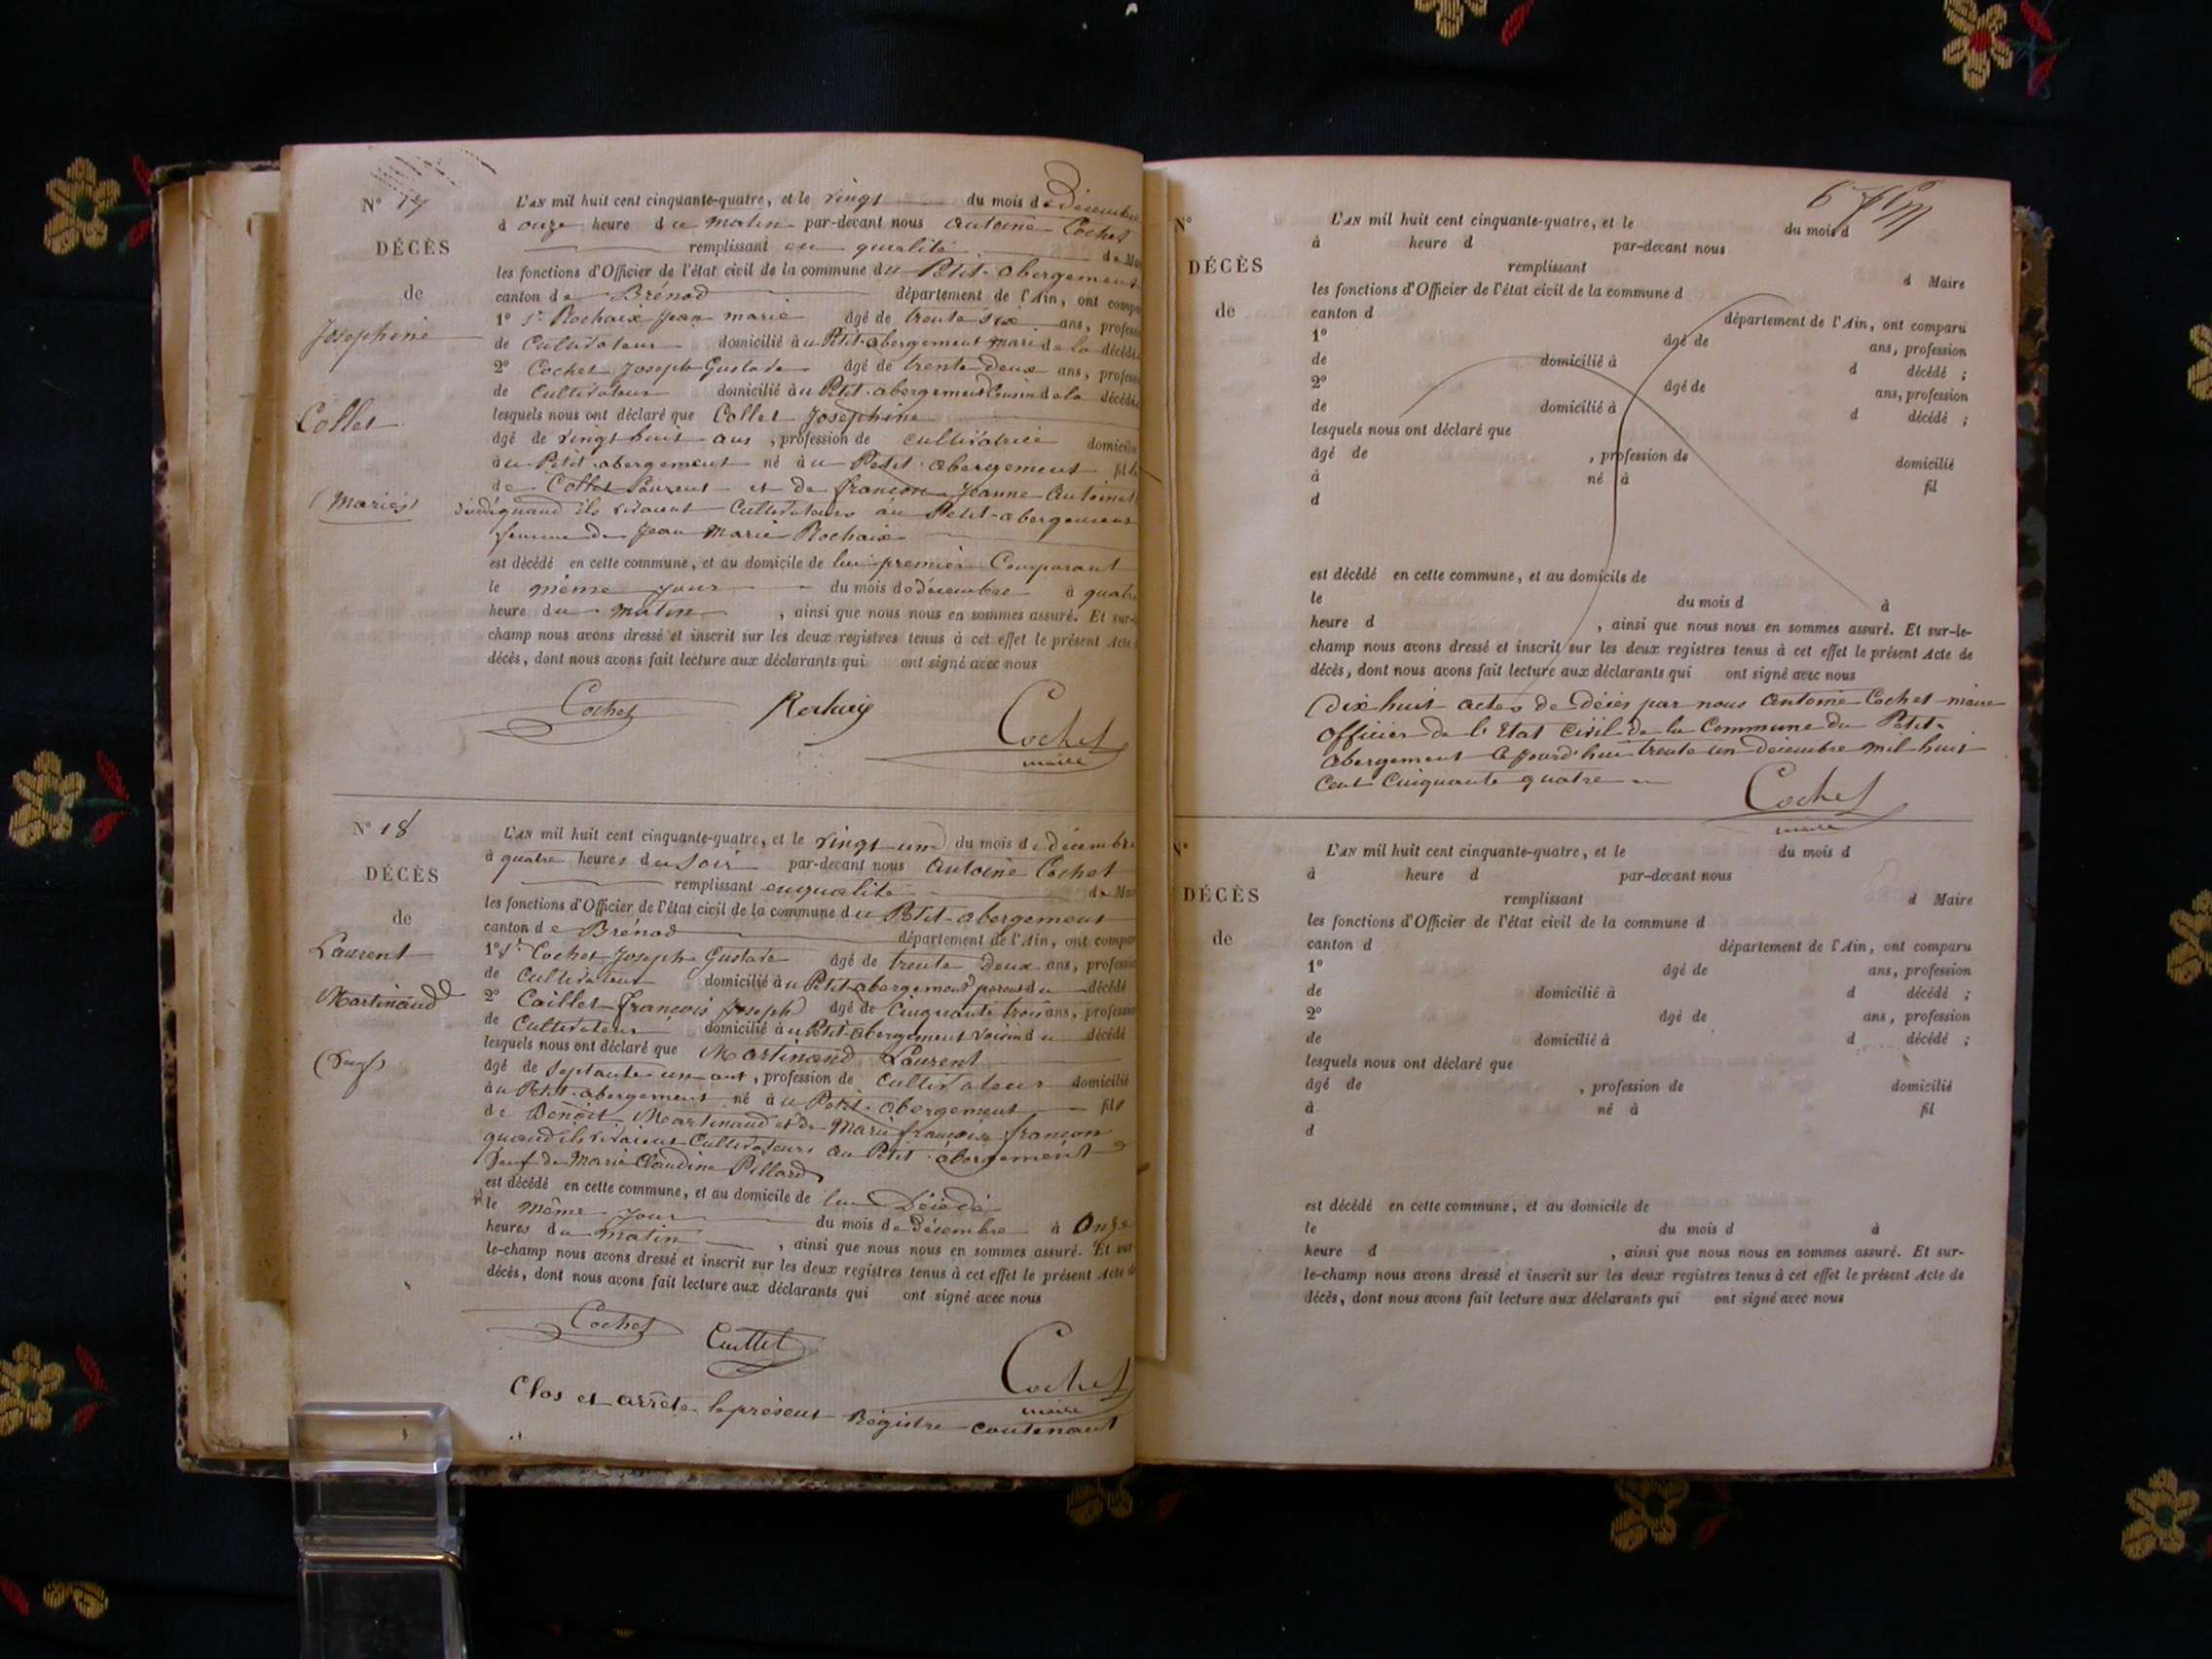 N° 17
DÉCÈS
de
Josephine
Collet
(Mariés)
L'AN mil huit cent cinquante-quatre, et le vingt du mois de Décembre
à onze heure du matin par-devant nous Antoine Cochet
remplissant en qualité de Ma
les fonctions d'Officier de l'état civil de la commune du Petit-abergement
canton de Brénod département de l'Ain, ont compa
1° Sr Rochaix Jean marie âgé de trente six ans, profess
de Cultivateur domicilié au Petit-abergement mari de la décédé
2° Cochet Joseph Gustave âgé de trente Deux ans, profess
de Cultivateur domicilié au Petit-abergement Cousin de la décédé
lesquels nous ont déclaré que Collet Josephine
âgé de vingt huit ans, profession de cultivatrice domicilié
au Petit-abergement né au Petit-abergement fil
de Collet Laurent et de françon Jeanne Antoinet
quand ils vivaient Cultivateurs au Petit-abergement
femme de Jean Marie Rochaix
est décédé en cette commune, et au domicile de lui premier Comparant
le même jour du mois de décembre à quatre
heure du matin, ainsi que nous nous en sommes assuré. Et sur-l
champ nous avons dressé et inscrit sur les deux registres tenus à cet effet le présent Acte
décès, dont nous avons fait lecture aux déclarants qui ont signé avec nous
Cochet Cochet
maire
N° 18
DÉCÈS
de
Laurent
Martinand
(Veuf)
L'AN mil huit cent cinquante-quatre, et le vingt un du mois de décembre
à quatre heures du soir par-devant nous Antoine Cochet
remplissant en qualité de Mai
les fonctions d'Officier de l'état civil de la commune du Petit-abergement
canton de Brénod département de l'Ain, ont compar
1° Sr Cochet Joseph Gustave âgé de trente Deux ans, professi
de Cultivateur domicilié au Petit-abergement parent du décédé
2° Caillet François Joseph âgé de Cinquante trois ans, professi
de Cultivateur domicilié au Petit-abergement voisin du décédé
lesquels nous ont déclaré que Martinand Laurent
âgé de septante un ans, profession de Cultivateur domicilié
au Petit-abergement né au Petit-abergement fils
de Benoit Martinand et de Marie françoise françon
quand ils vivaient Cultivateurs au Petit-abergement
Veuf de Marie Claudine Pillard
est décédé en cette commune, et au domicile de lui Décédé
le même jour du mois de décembre à Onze
heures du matin, ainsi que nous nous en sommes assuré. Et sur-
le-champ nous avons dressé et inscrit sur les deux registres tenus à cet effet le présent Acte de
décès, dont nous avons fait lecture aux déclarants qui ont signé avec nous
Cochet Caillet Cochet
maire
Clos et arrêté le présent Régistre contenant
N°
DÉCÈS
de
L'AN mil huit cent cinquante-quatre, et le du mois d
à heure d par-devant nous
remplissant d Maire
les fonctions d'Officier de l'état civil de la commune d
canton d département de l'Ain, ont comparu
1° âgé de ans, profession
de domicilié à d décédé ;
2° âgé de ans, profession
de domicilié à d décédé ;
lesquels nous ont déclaré que
âgé de , profession de domicilié
à né à fil
d
est décédé en cette commune, et au domicils de
le du mois d à
heure d , ainsi que nous nous en sommes assuré. Et sur-le-
champ nous avons dressé et inscrit sur les deux registres tenus à cet effet le présent Acte de
décès, dont nous avons fait lecture aux déclarants qui ont signé avec nous
Dix huit actes de Décès par nous Antoine Cochet maire
Officier de l'Etat Civil de la Commune du Petit-
Abergement Cejourd'hui trente un decembre mil huit
Cent Cinquante quatre
Cochet
maire
N°
DÉCÈS
de
L'AN mil huit cent cinquante-quatre, et le du mois d
à heure d par-devant nous
remplissant d Maire
les fonctions d'Officier de l'état civil de la commune d
canton d département de l'Ain, ont comparu
1° âgé de ans, profession
de domicilié à d décédé ;
2° âgé de ans, profession
de domicilié à d décédé ;
lesquels nous ont déclaré que
âgé de , profession de domicilié
à né à fil
d
est décédé en cette commune, et au domicile de
le du mois d à
heure d , ainsi que nous nous en sommes assuré. Et sur-
le-champ nous avons dressé et inscrit sur les deux registres tenus à cet effet le présent Acte de
décès, dont nous avons fait lecture aux déclarants qui ont signé avec nous